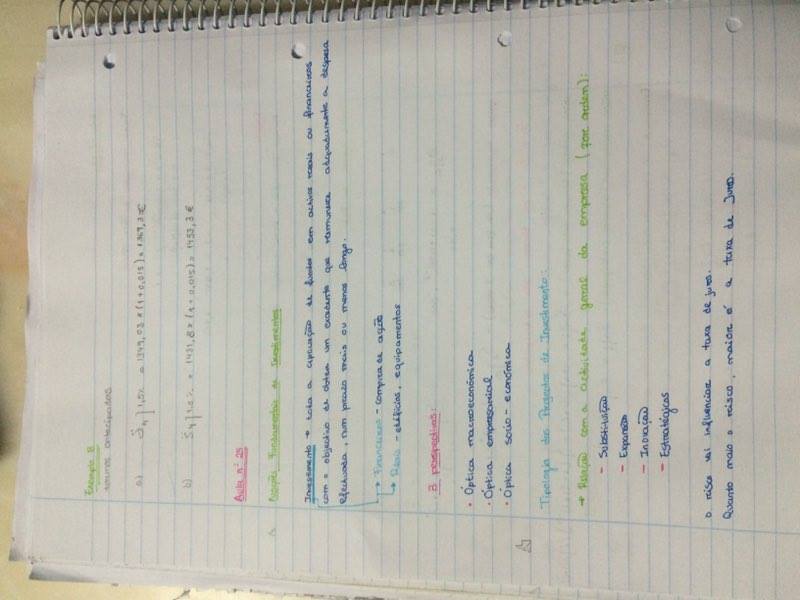 Exemplo B
termos antecipados
a) S̈4┐1,5% = 1349,03 × (1 + 0,015) = 1369,3€
b) S̈4┐1,5% = 1431,8 × (1 + 0,015) = 1453,3€
Aula nº 25
Noções Fundamentais de Investimentos
Investimento → toda a aplicação de fundos em activos reais ou financeiros
com o objectivo de obter um excedente que remunere adequadamente a despesa
efectuada, num prazo mais ou menos longo.
→ Financeiros - compra de ação
→ Reais - edifícios, equipamentos
3 perspectivas:
• Óptica macroeconómica
• Óptica empresarial
• Óptica socio-económica
Tipologia dos Projectos de Investimento:
→ Relação com a actividade geral da empresa (por ordem):
- Substituição
- Expansão
- Inovação
- Estratégicos
O risco vai influenciar a taxa de juro.
Quanto maio o risco, maior é a taxa de Juro.